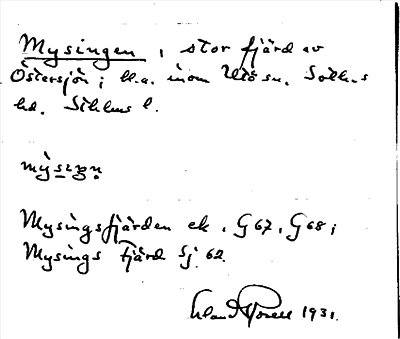 Mysingen, stor fjärd av
Östersjön; bl.a. inom Utö sn. Sotholms
hd. Sthlms l.
mỳsıŋn
Mysingsfjärden ek. G 67, G 68;
Mysings fjärd Sj. 62.
1931.